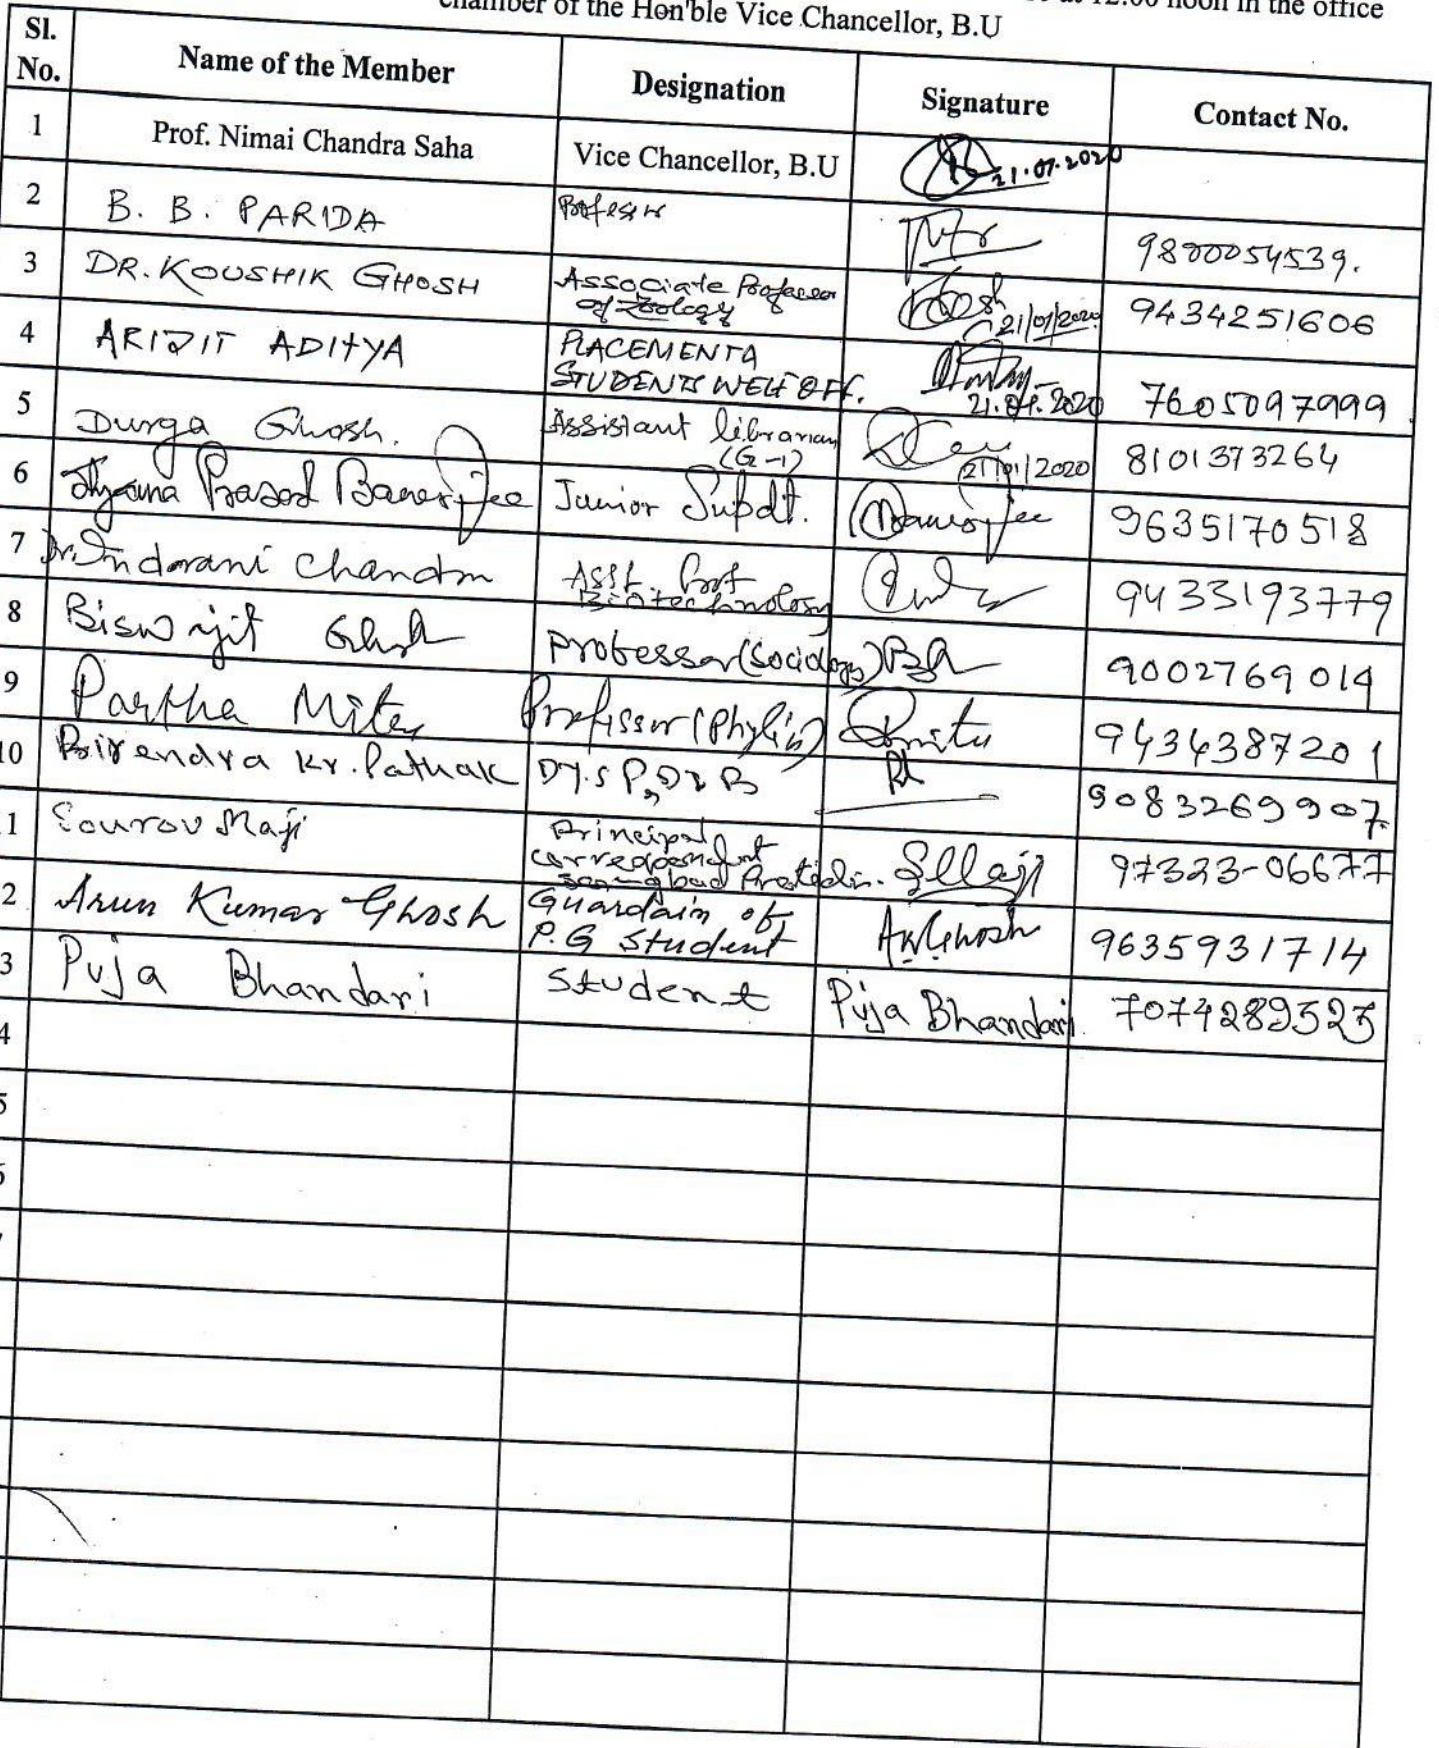 at 12:00 noon in the office
chamber of the Hon'ble Vice Chancellor, B.U
Sl. No. Name of the Member Designation Signature Contact No.
1 Prof. Nimai Chandra Saha Vice Chancellor, B.U 21.07.2020
2 B. B. PARIDA Professor 9800054539.
3 DR. KOUSHIK GHOSH Associate Professor
of Zoology 21/01/2020 9434251606
4 ARIJIT ADITYA PLACEMENT &
STUDENTS WELF OFF. 21.01.2020 7605097999
5 Durga Ghosh. Assistant librarian
(G-1) 21/01/2020 8101373264
6 Prasad Banerjee Junior Supdt. Banerjee 9635170518
7 Dr. Indrani Chandra Asst. Prof
Biotechnology 9433193779
8 Biswajit Ghosh Professor (Sociology) 9002769014
9 Partha Mitra Professor (Physics) 9434387201
10 Birendra Kr. Pathak DY. S P, DIB 9083269907
1 Sourav Maji Principal
correspondent
Sangbad Pratidin. SMaji 97323-06677
2 Arun Kumar Ghosh Guardain of
P.G Student AKGhosh 9635931714
3 Puja Bhandari Student Puja Bhandari 7074289523
4
5
6
7